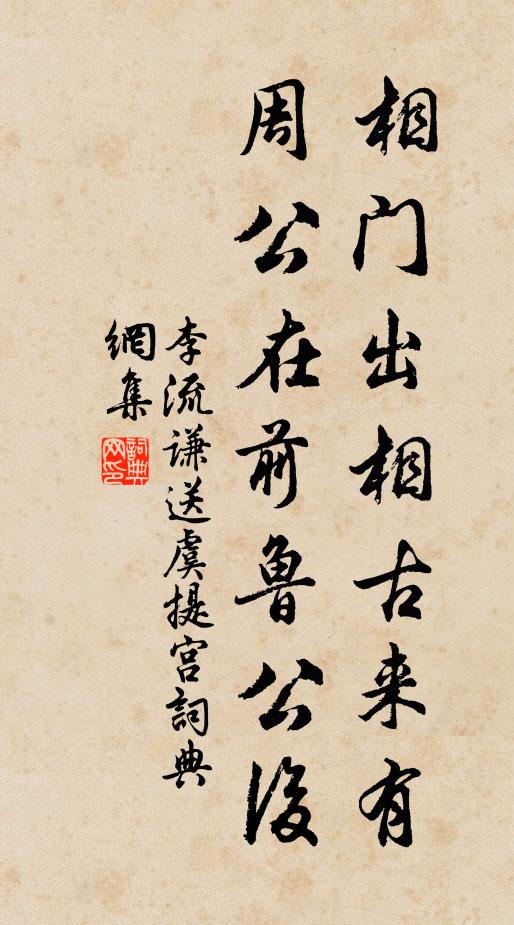 相门出相古来有
周公在前魯公後
李流谦送虞提宫詞典
網集
詞典网印